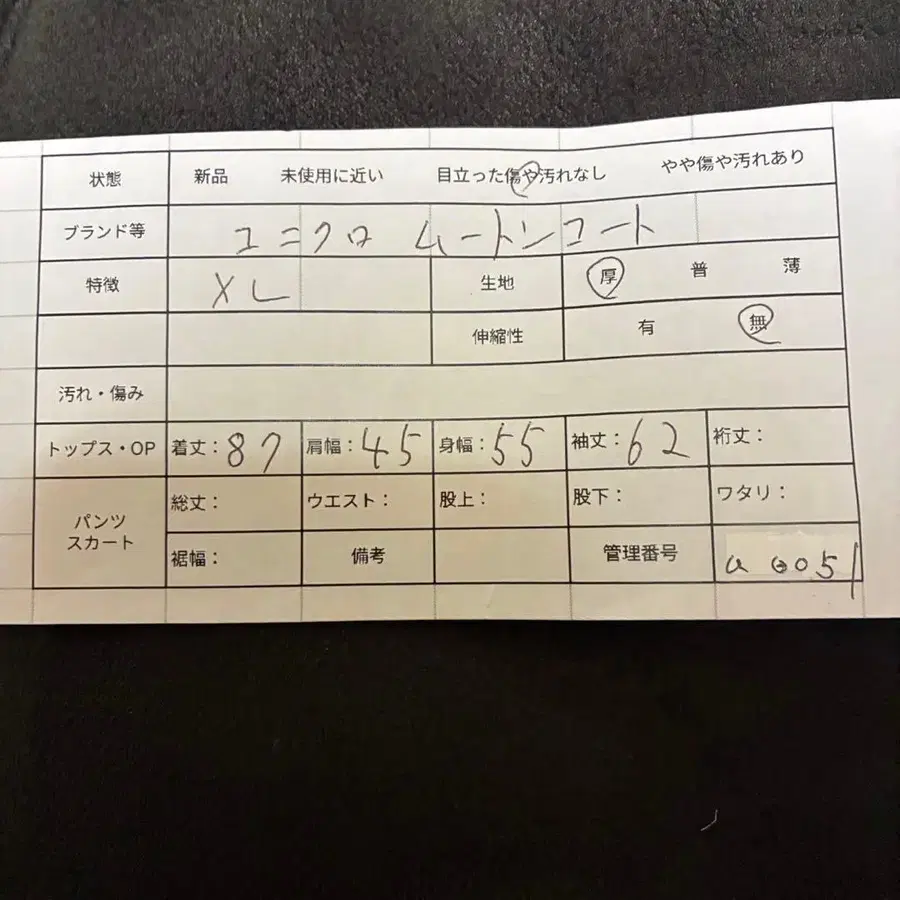 状態 新品 未使用に近い 目立った傷や汚れなし やや傷や汚れあり
ブランド等 ユニクロ ムートンコート
特徴 XL 生地 厚 普 薄
伸縮性 有 無
汚れ・傷み
トップス・OP 着丈：87 肩幅：45 身幅：55 袖丈：62 裄丈：
パンツ スカート 総丈： ウエスト： 股上： 股下： ワタリ：
裾幅： 備考 管理番号